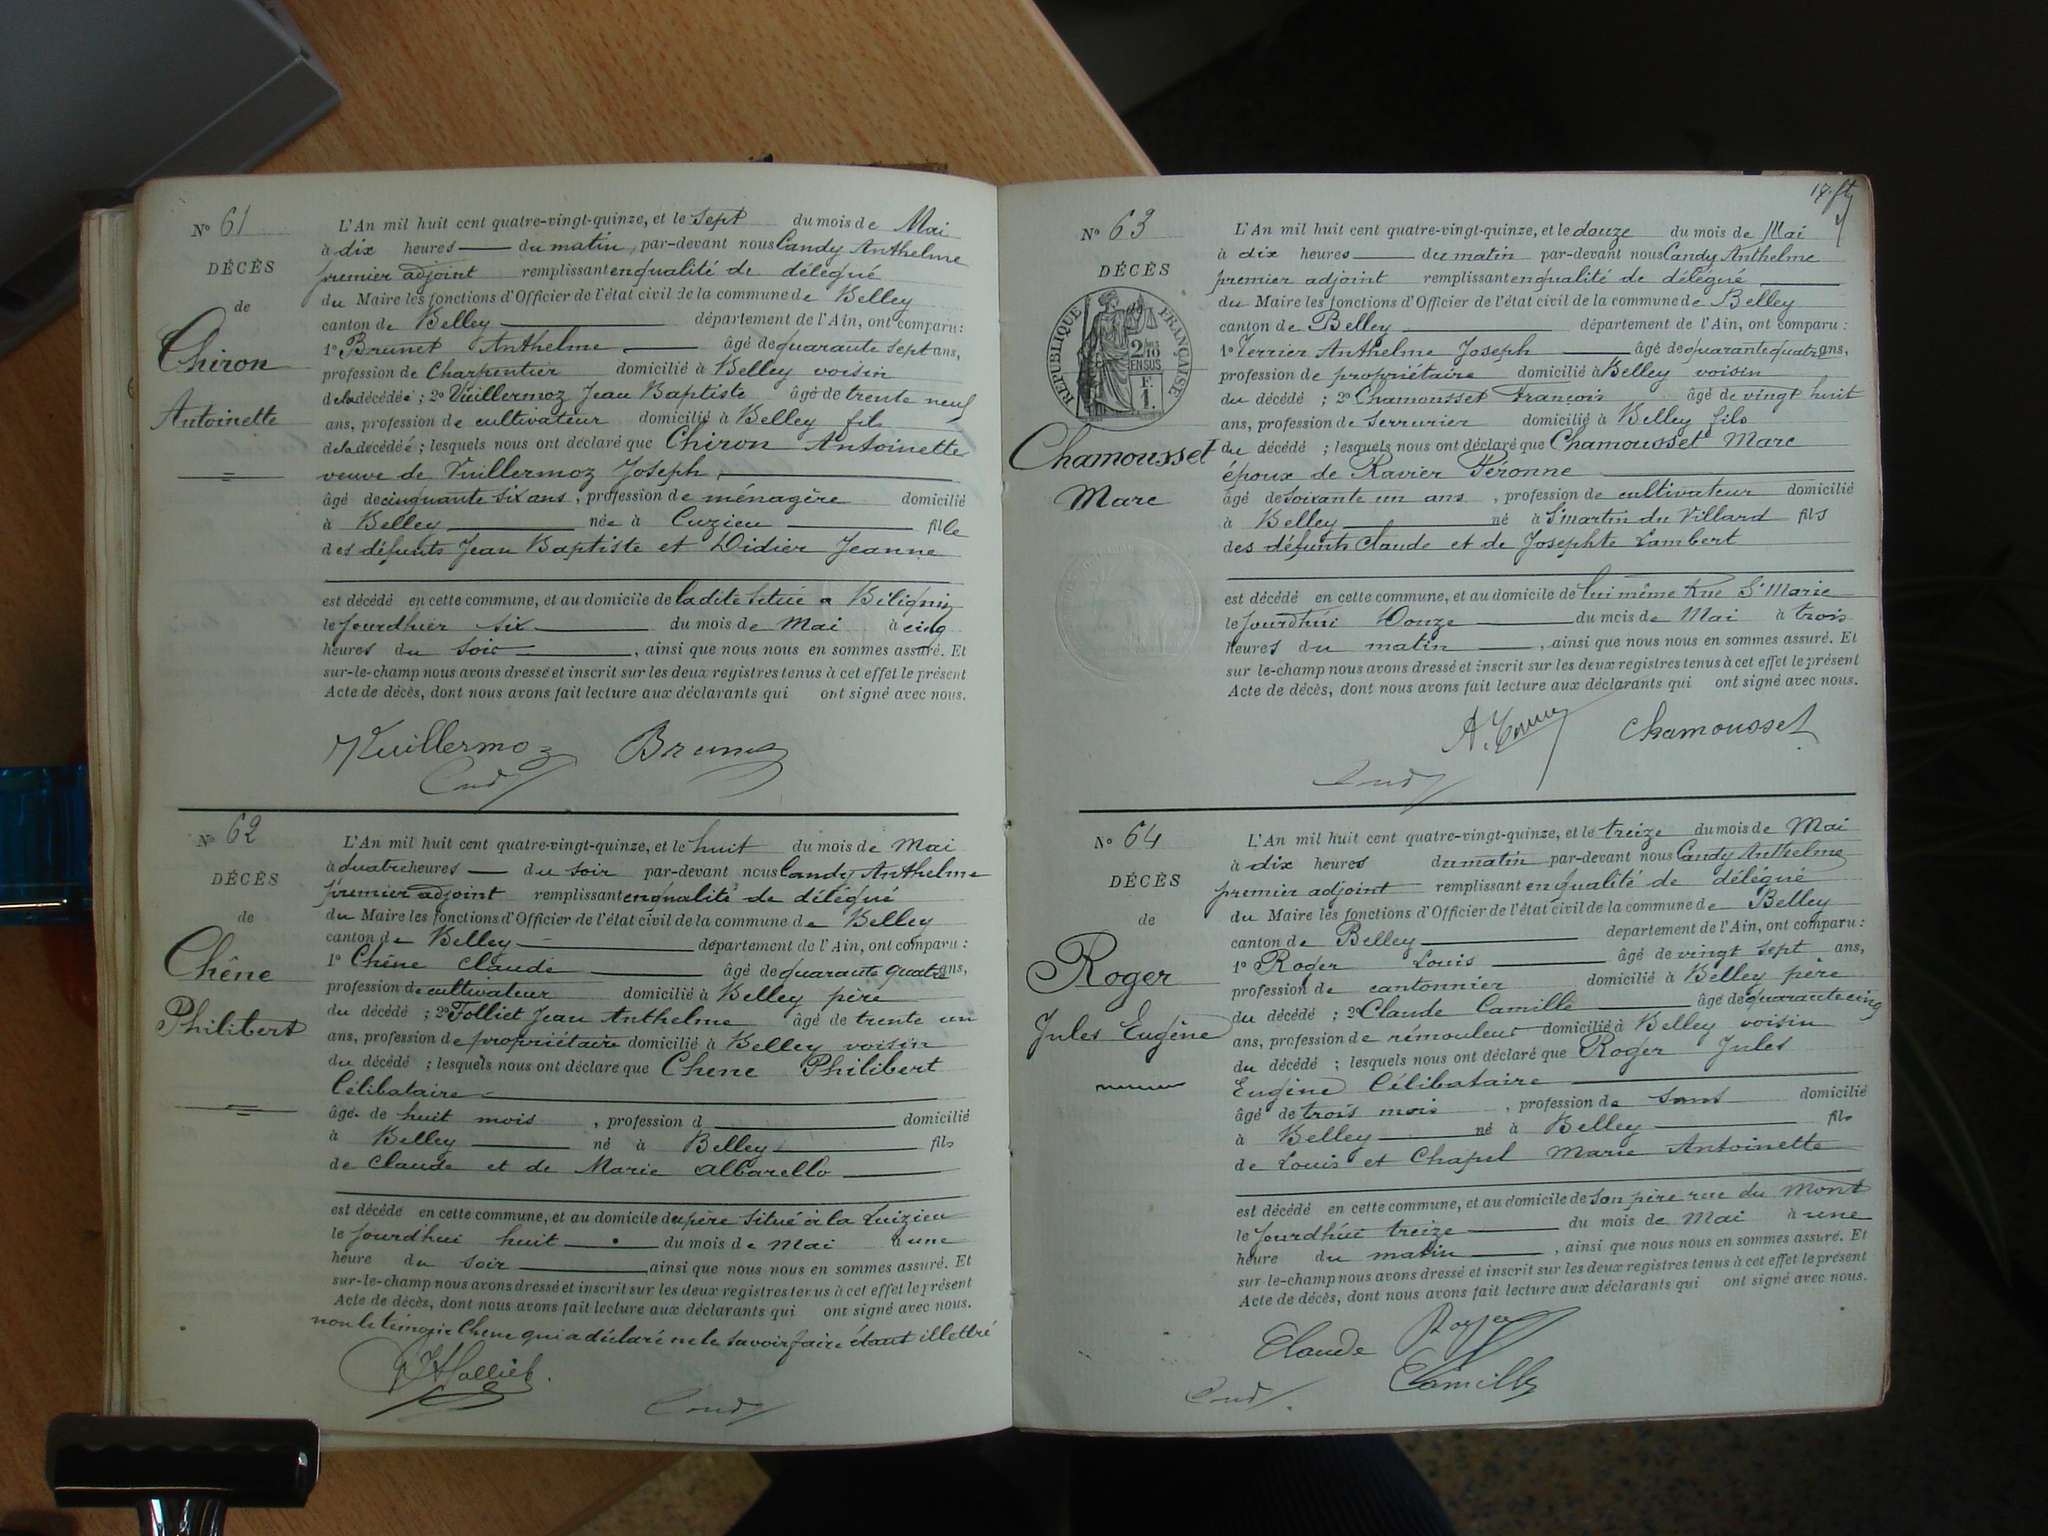 N° 61
DÉCÈS
de
Chiron
Antoinette
L'An mil huit cent quatre-vingt-quinze, et le sept du mois de Mai
à dix heures du matin, par-devant nous Candy Anthelme
premier adjoint remplissant en qualité de délégué
du Maire les fonctions d'Officier de l'état civil de la commune de Belley
canton de Belley département de l'Ain, ont comparu :
1° Brunet Anthelme âgé de quarante sept ans,
profession de Charpentier domicilié à Belley voisin
de la décédée ; 2° Vuillermoz Jean Baptiste âgé de trente neuf
ans, profession de cultivateur domicilié à Belley fils
de la décédée ; lesquels nous ont déclaré que Chiron Antoinette
veuve de Vuillermoz Joseph
âgé de cinquante six ans, profession de ménagère domicilié
à Belley née à Cuzieu fille
des défunts Jean Baptiste et Didier Jeanne
est décédé en cette commune, et au domicile de ladite située à Béligny
le jourdhier six du mois de Mai à cinq
heures du soir, ainsi que nous nous en sommes assuré. Et
sur-le-champ nous avons dressé et inscrit sur les deux registres tenus à cet effet le présent
Acte de décès, dont nous avons fait lecture aux déclarants qui ont signé avec nous.
Vuillermoz Brunet
Candy
N° 62
DÉCÈS
de
Chêne
Philibert
L'An mil huit cent quatre-vingt-quinze, et le huit du mois de Mai
à quatre heures du soir par-devant nous Candy Anthelme
premier adjoint remplissant en qualité de délégué
du Maire les fonctions d'Officier de l'état civil de la commune de Belley
canton de Belley département de l'Ain, ont comparu :
1° Chêne Claude âgé de quarante quatre ans,
profession de cultivateur domicilié à Belley père
du décédé ; 2° Folliet Jean Anthelme âgé de trente un
ans, profession de propriétaire domicilié à Belley voisin
du décédé ; lesquels nous ont déclaré que Chene Philibert
Célibataire
âgé de huit mois, profession d domicilié
à Belley né à Belley fils
de Claude et de Marie Albarello
est décédé en cette commune, et au domicile du père situé à la
le jourdhui huit du mois de Mai à une
heure du soir, ainsi que nous nous en sommes assuré. Et
sur-le-champ nous avons dressé et inscrit sur les deux registres tenus à cet effet le présent
Acte de décès, dont nous avons fait lecture aux déclarants qui ont signé avec nous.
non le témoin Chene qui a déclaré ne le savoir faire étant illettré
Folliet
Candy
17
N° 63
DÉCÈS
RÉPUBLIQUE FRANÇAISE
2/10
EN SUS
F.
1.
Chamousset
Marc
L'An mil huit cent quatre-vingt-quinze, et le douze du mois de Mai
à dix heures du matin par-devant nous Candy Anthelme
premier adjoint remplissant en qualité de délégué
du Maire les fonctions d'Officier de l'état civil de la commune de Belley
canton de Belley département de l'Ain, ont comparu :
1° Terrier Anthelme Joseph âgé de quarante quatre ans,
profession de propriétaire domicilié à Belley voisin
du décédé ; 2° Chamousset François âgé de vingt huit
ans, profession de Serrurier domicilié à Belley fils
du décédé ; lesquels nous ont déclaré que Chamousset Marc
époux de Ravier Péronne
âgé de soixante un ans, profession de cultivateur domicilié
à Belley né à St martin du Villard fils
des défunts Claude et de Josephte Lambert
est décédé en cette commune, et au domicile de lui même Rue Ste Marie
le jourdhui Douze du mois de Mai à trois
heures du matin, ainsi que nous nous en sommes assuré. Et
sur-le-champ nous avons dressé et inscrit sur les deux registres tenus à cet effet le présent
Acte de décès, dont nous avons fait lecture aux déclarants qui ont signé avec nous.
A. Terrier Chamousset
Candy
N° 64
DÉCÈS
de
Roger
Jules Eugène
L'An mil huit cent quatre-vingt-quinze, et le treize du mois de Mai
à dix heures du matin par-devant nous Candy Anthelme
premier adjoint remplissant en qualité de délégué
du Maire les fonctions d'Officier de l'état civil de la commune de Belley
canton de Belley département de l'Ain, ont comparu :
1° Roger Louis âgé de vingt sept ans,
profession de cantonnier domicilié à Belley père
du décédé ; 2° Claude Camille âgé de quarante cinq
ans, profession de rémouleur domicilié à Belley voisin
du décédé ; lesquels nous ont déclaré que Roger Jules
Eugène Célibataire
âgé de trois mois, profession de sans domicilié
à Belley né à Belley fils
de Louis et Chapel Marie Antoinette
est décédé en cette commune, et au domicile de son père rue du Mont
le jourdhui treize du mois de Mai à une
heure du matin, ainsi que nous nous en sommes assuré. Et
sur-le-champ nous avons dressé et inscrit sur les deux registres tenus à cet effet le présent
Acte de décès, dont nous avons fait lecture aux déclarants qui ont signé avec nous.
Claude Roger
Camille
Candy